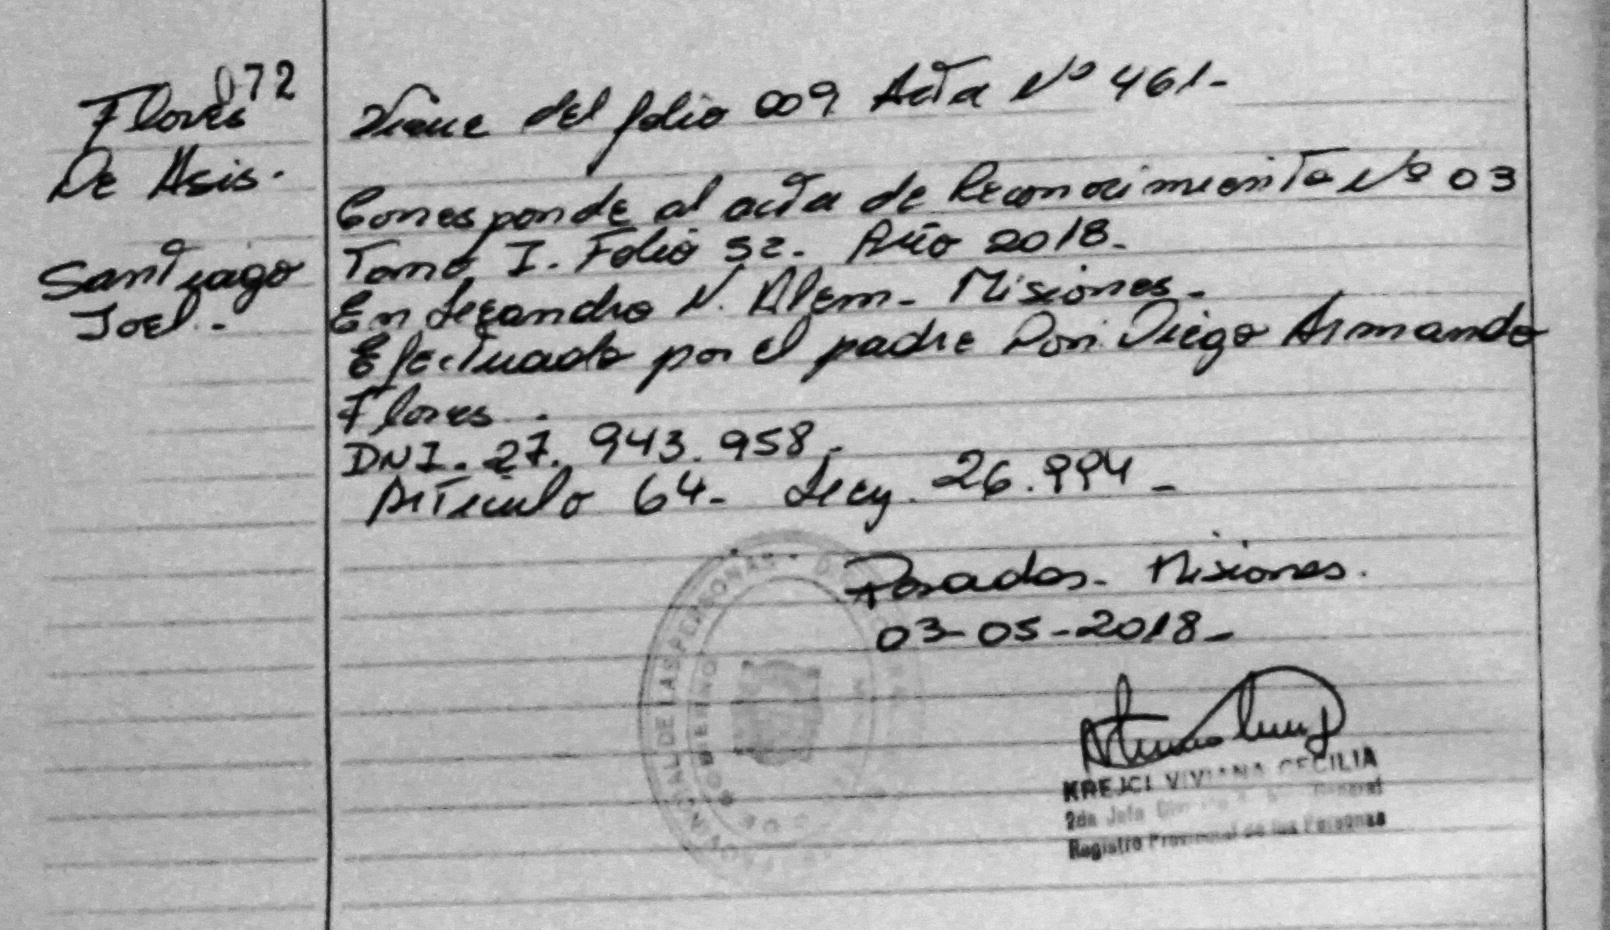 072
Flores
De Asis.
Santiago
Joel.-
Viene del folio 009 Acta Nº 461-
Corresponde al acta de Reconocimiento Nº 03
Tomo I. Folio 52. Año 2018.
En Leandro N. Alem- Misiones.
Efectuado por el padre Don Diego Armando
Flores.
DNI. 27.943.958.
Articulo 64- Ley. 26.994-
Posadas- Misiones.
03-05-2018-
KREJCI VIVIANA CECILIA
2da Jefa General
Registro Provincial de las Personas
PROVINCIAL DE LAS PERSONAS
GOBIERNO